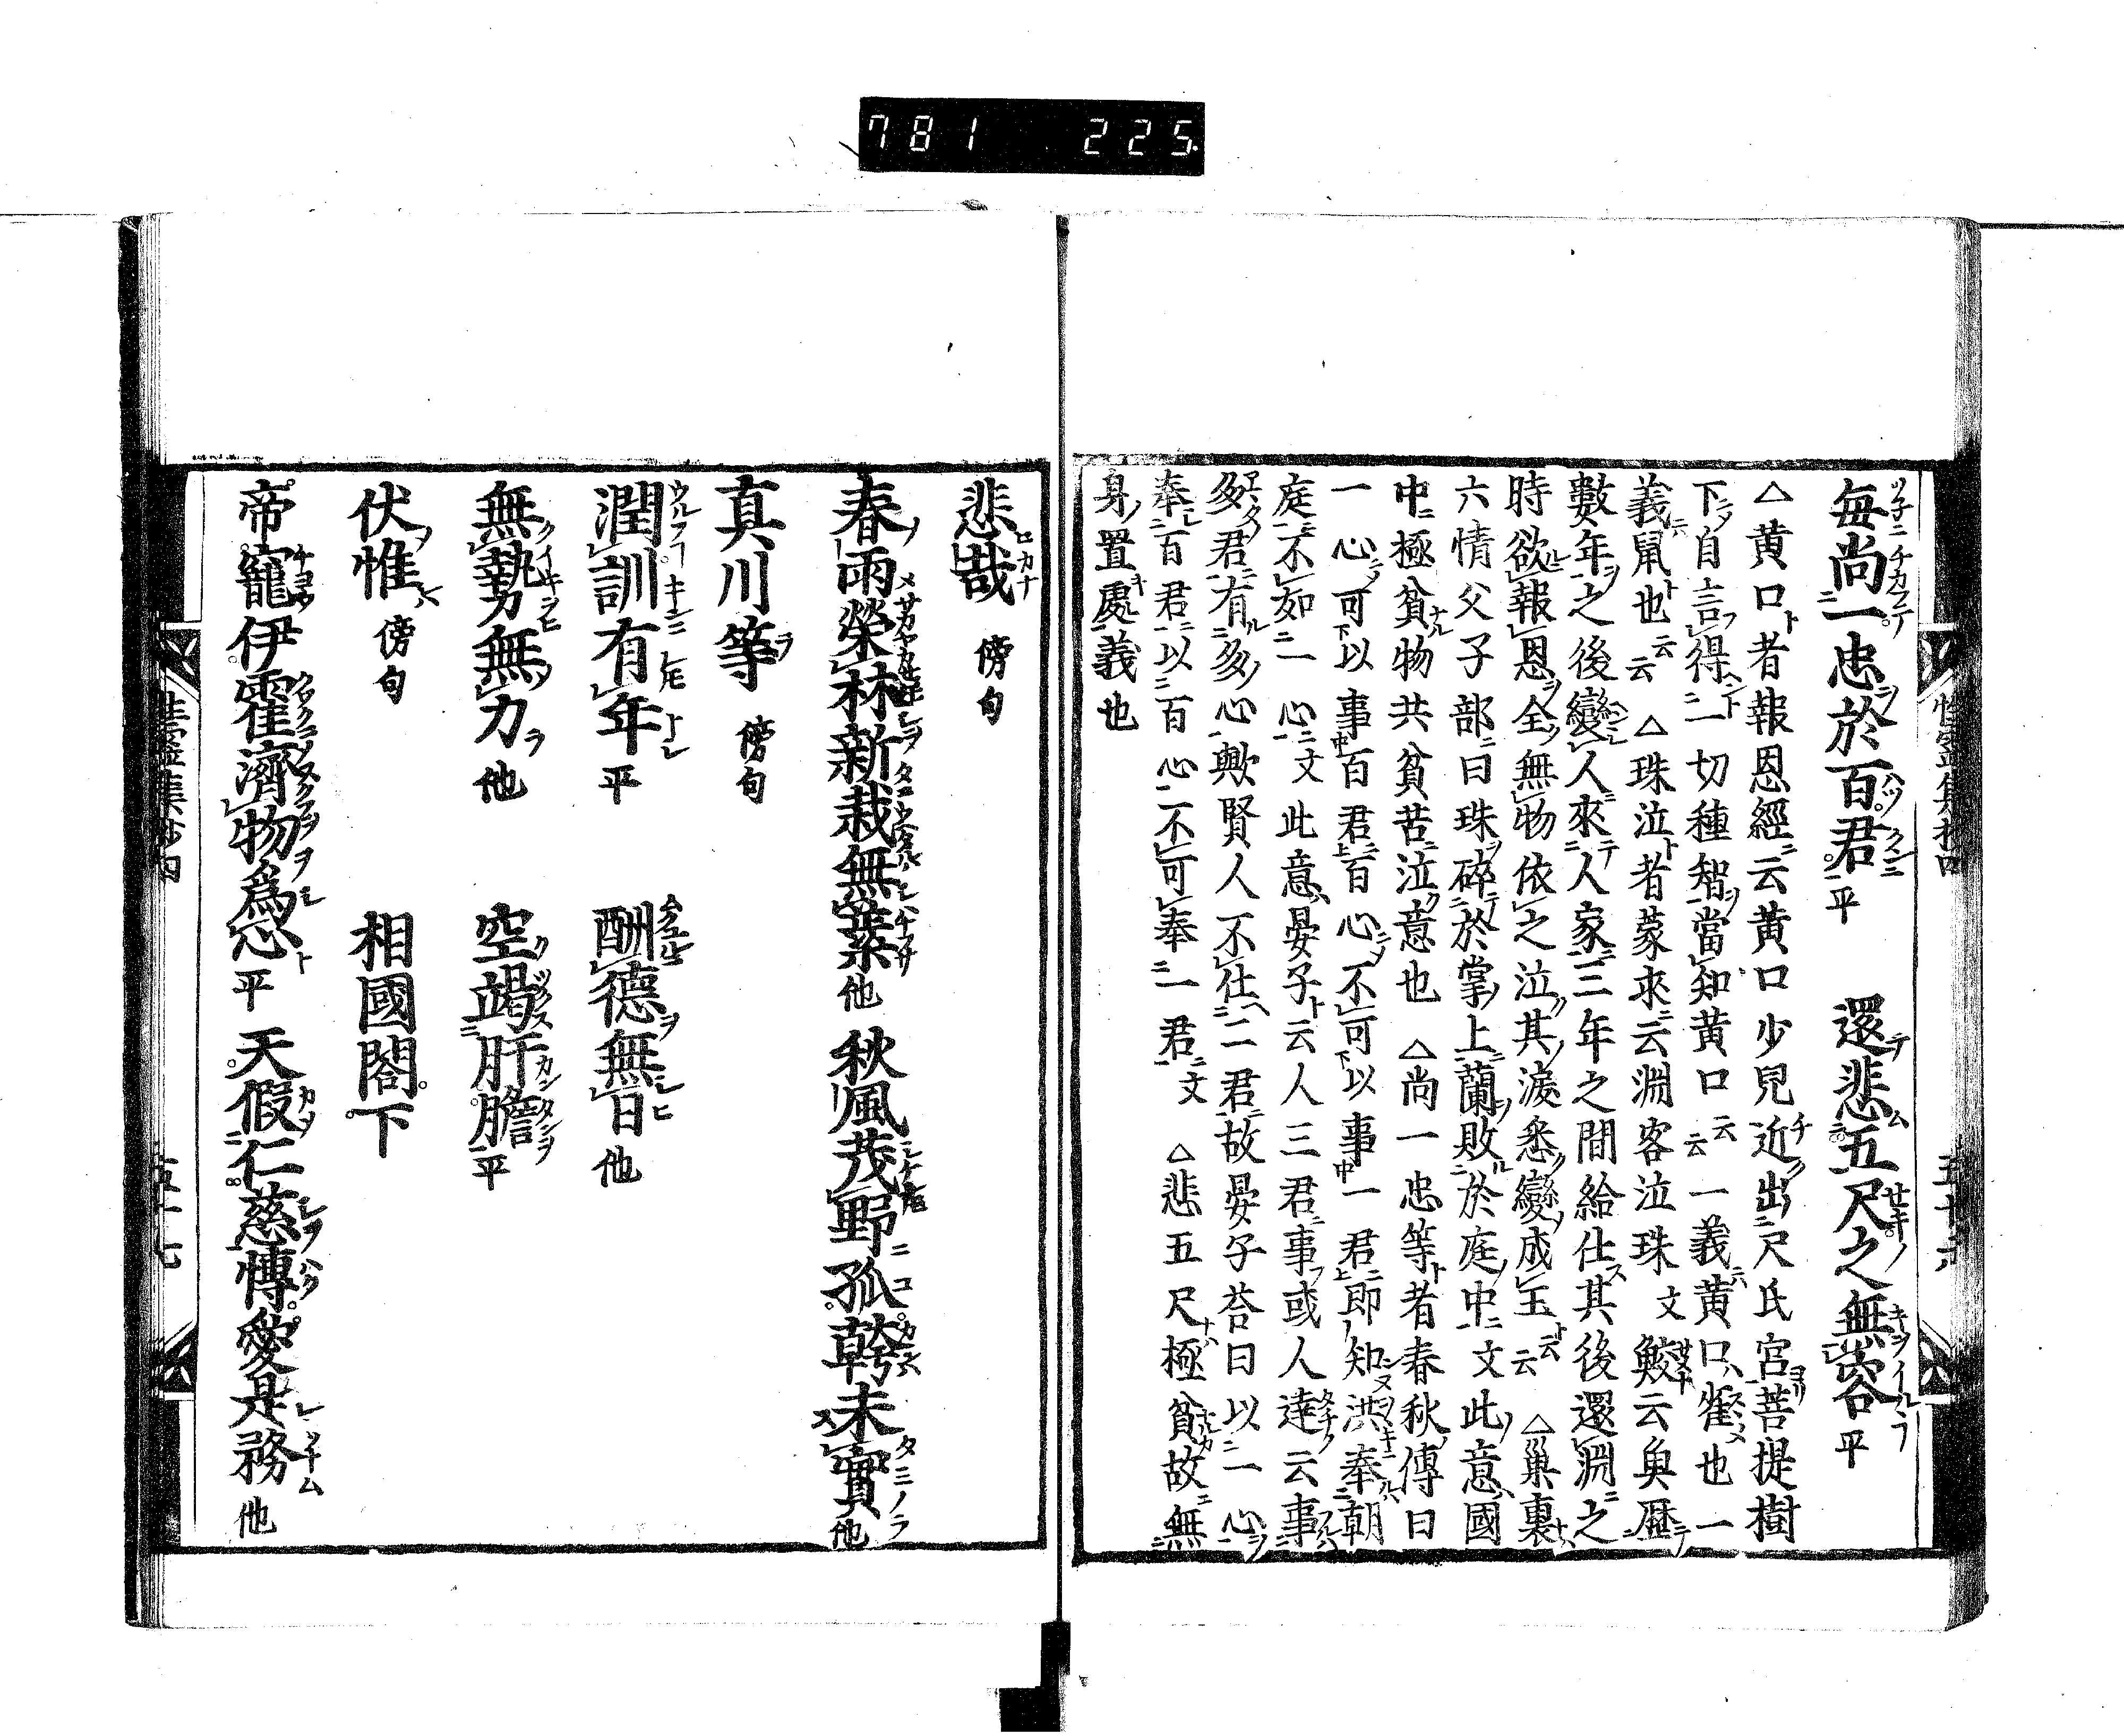 781 225
每尚一忠於百君 平 還悲五尺之無容 平
△黄口者報恩經云黄口少児近出尺氏宮菩提樹
下自言得一切種智當知黄口云云一義黄口雀也一
義鼠也云云 △珠泣者蒙求云淵客泣珠文鮫云魚歴
數年之後變人來人家三年之間給仕其後還淵之
時欲報恩全無物依之泣其涙悉變成玉云云 △巢裏
六情父子部曰珠碎於掌上蘭敗於庭中文此意國
中極貧物共貧苦泣意也 △尚一忠等者春秋傳曰
一心可以事百君百心不可以事一君即知洪奉朝
庭不如一心文此意晏子云人三君事或人達云事
多君有多心歟賢人不仕二君故晏子荅曰以一心
奉百君以百心不可奉一君文 △悲五尺極貧故無
身置處義也
悲哉 傍句
春雨榮林新栽無葉他 秋風茂野孤䓫未實他
真川等 傍句
潤訓有年 平 酬德無日 他
無勢無力 他 空竭肝膽 平
伏惟 傍句 相國閤下
帝寵伊霍濟物爲心 平 天假仁慈愽愛是務 他
五十七